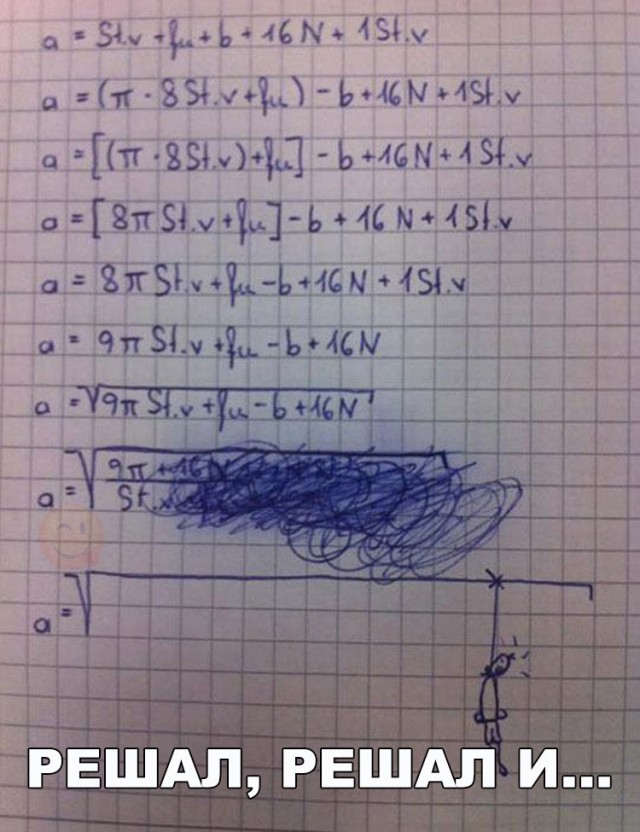 a = St.v + fu + b + 16 N + 1 St.v
a = (π · 8 St.v + fu) - b + 16 N + 1 St.v
a = [(π · 8 St.v) + fu] - b + 16 N + 1 St.v
a = [8 π St.v + fu] - b + 16 N + 1 St.v
a = 8 π St.v + fu - b + 16 N + 1 St.v
a = 9 π St.v + fu - b + 16 N
a = √9 π St.v + fu - b + 16 N
9π + 16 N
a = √
St.
a = √
РЕШАЛ, РЕШАЛ И...